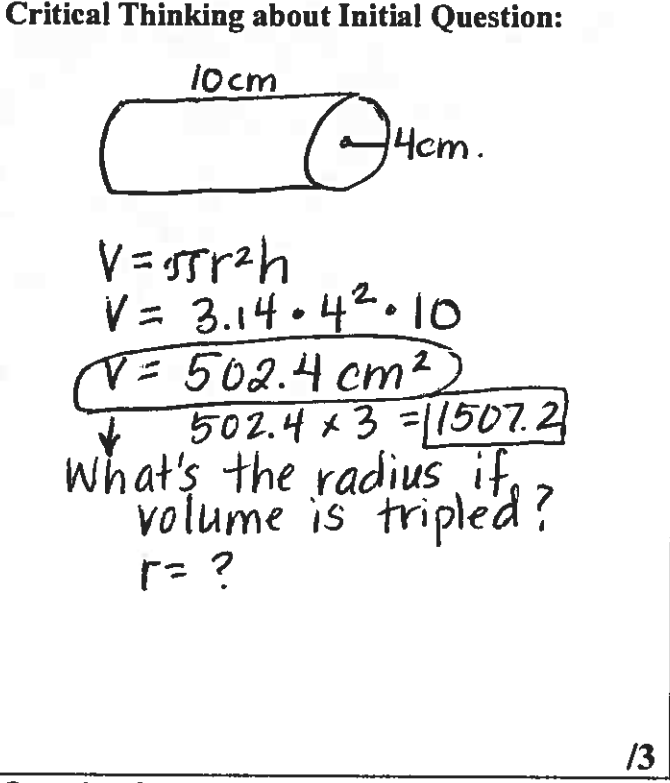 Critical Thinking about Initial Question:
10cm
4cm.
V = πr²h
V = 3.14 • 4² • 10
V = 502.4 cm²
502.4 x 3 = 1507.2
What's the radius if
volume is tripled?
r = ?
/3